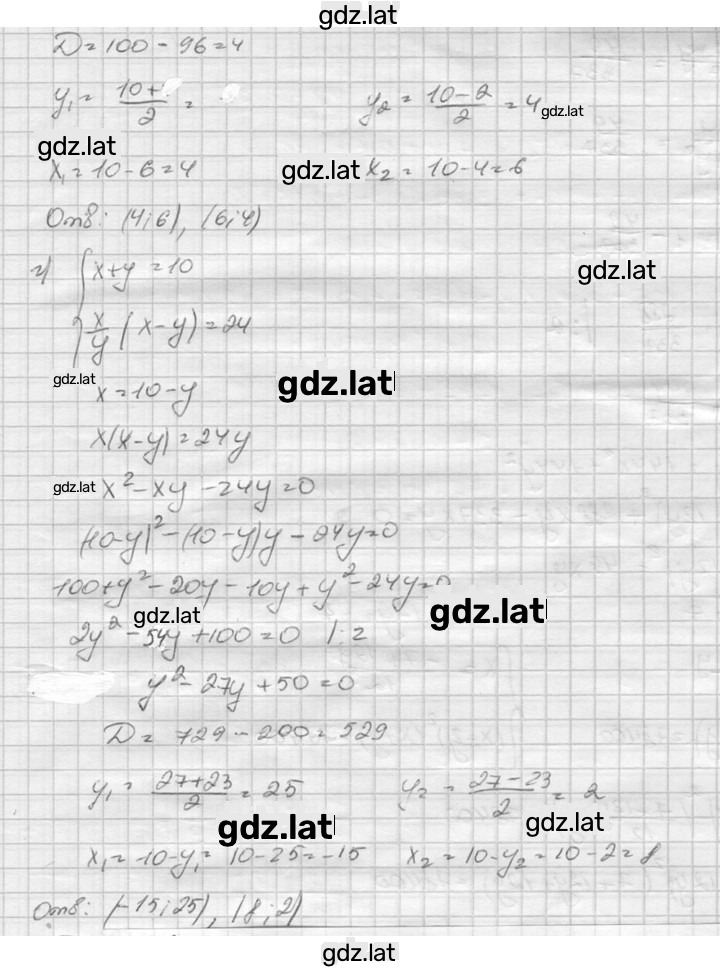 gdz.lat
D = 100 - 96 = 4
y₁ = (10+ )/2 =   y₂ = (10-2)/2 = 4 gdz.lat
gdz.lat
x₁ = 10 - 6 = 4   gdz.lat x₂ = 10 - 4 = 6
Отв: (4;6), (6;4)
г) { x+y = 10
gdz.lat
x/y (x-y) = 24
gdz.lat gdz.lat
x = 10 - y
x(x-y) = 24y
gdz.lat x² - xy - 24y = 0
(10-y)² - (10-y)y - 24y = 0
100 + y² - 20y - 10y + y² - 24y = 0
gdz.lat gdz.lat
2y² - 54y + 100 = 0 |:2
y² - 27y + 50 = 0
D = 729 - 200 = 529
y₁ = (27+23)/2 = 25   y₂ = (27-23)/2 = 2
gdz.lat gdz.lat
x₁ = 10 - y₁ = 10 - 25 = -15   x₂ = 10 - y₂ = 10 - 2 = 8
Отв: (-15;25), (8;2)
gdz.lat